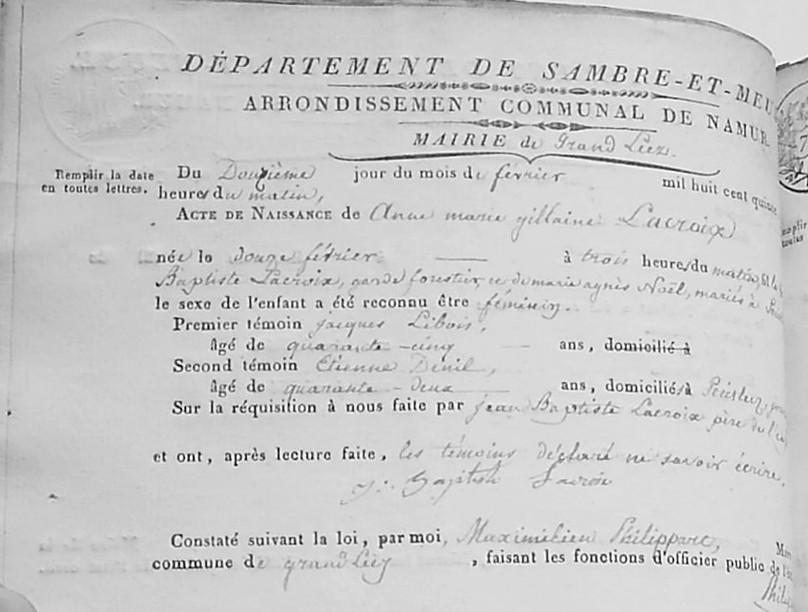 DÉPARTEMENT DE SAMBRE-ET-MEU
ARRONDISSEMENT COMMUNAL DE NAMUR.
MAIRIE de Grand Leez.
Remplir la date
en toutes lettres.
Du Douzième jour du mois de février mil huit cent quinze
heures du matin,
ACTE DE NAISSANCE de Anne marie gillaine Lacroix
née le douze février à trois heures du matin,
Baptiste Lacroix, garde forestier, et de marie agnès Noël, mariés à
le sexe de l'enfant a été reconnu être féminin.
Premier témoin jacques Libois,
âgé de quarante-cinq ans, domicilié à
Second témoin Etienne Denil,
âgé de quarante-deux ans, domiciliés à
Sur la réquisition à nous faite par jean Baptiste Lacroix père de
et ont, après lecture faite, les témoins déclaré ne savoir écrire.
j: Baptist Lacroix
Constaté suivant la loi, par moi, Maximilien Philippart,
commune de grand Léez, faisant les fonctions d'officier public de